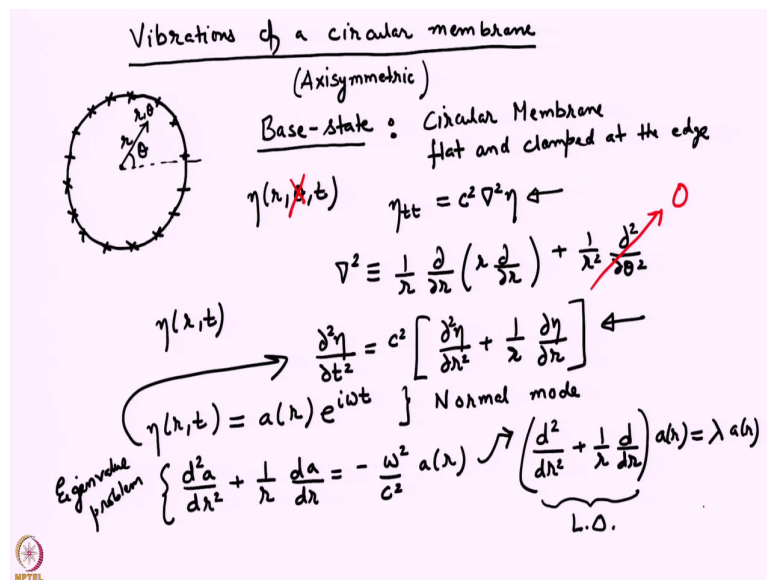 Vibrations of a circular membrane
(Axisymmetric)
r,θ
r
θ
Base-state : Circular Membrane
flat and clamped at the edge
η(r,θ,t)
η_tt = c² ∇²η ←
0
∇² ≡ 1/r ∂/∂r (r ∂/∂r) + 1/r² ∂²/∂θ²
η(r,t)
∂²η/∂t² = c² [ ∂²η/∂r² + 1/r ∂η/∂r ] ←
η(r,t) = a(r) e^{iωt} } Normal mode
Eigenvalue problem { d²a/dr² + 1/r da/dr = - ω²/c² a(r) → (d²/dr² + 1/r d/dr) a(r) = λ a(r)
L.O.
NPTEL